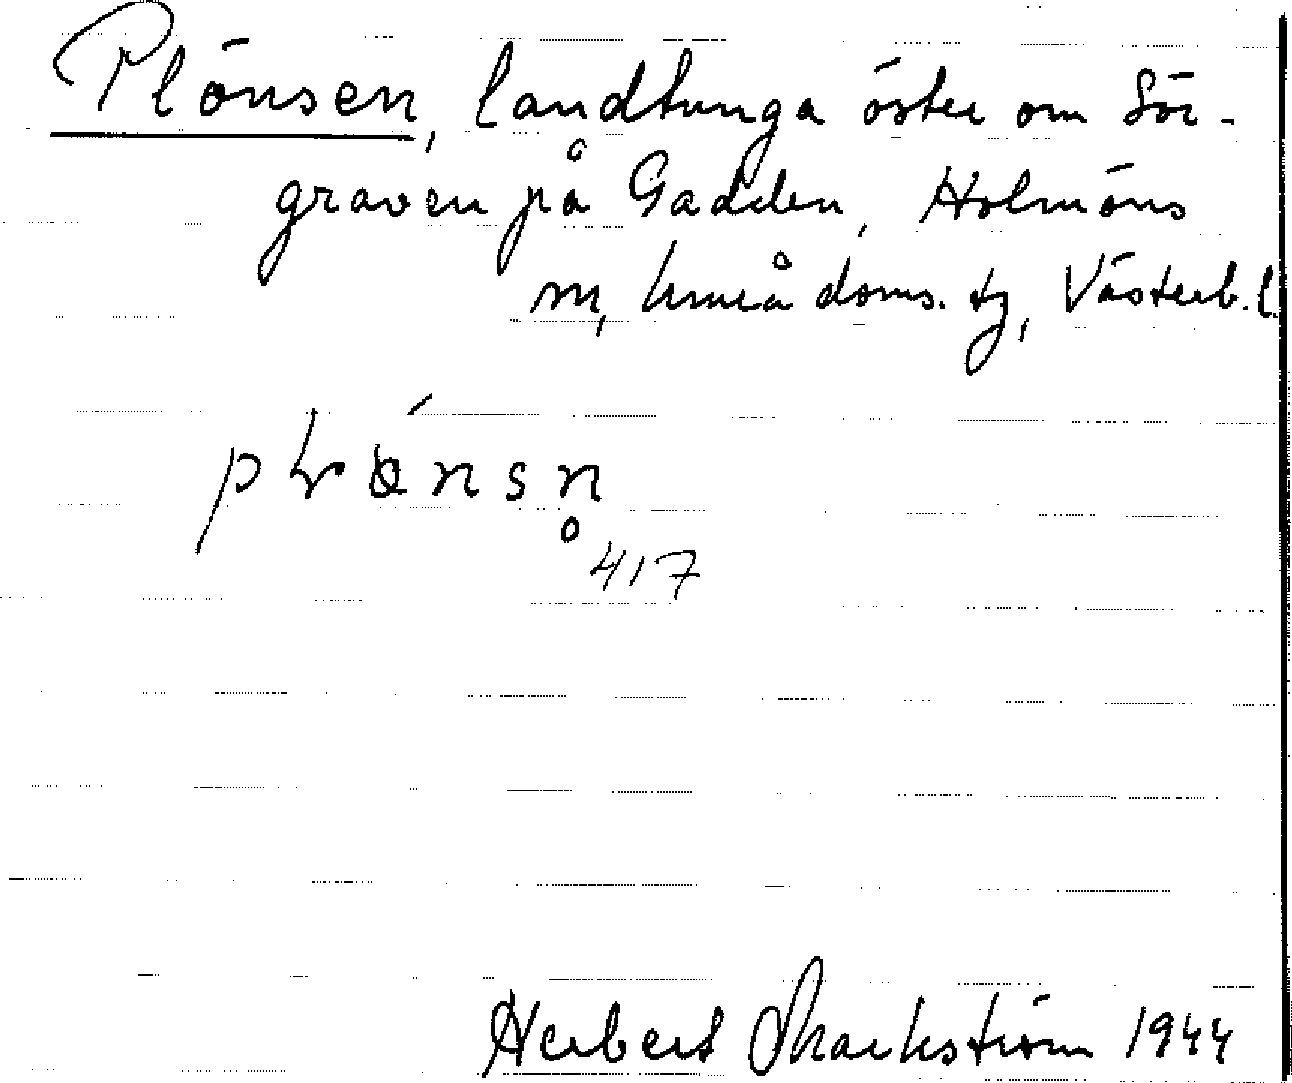 Plönsen, landtunga öster om Sör-
graven på Gadden, Holmöns
sn, Umeå doms. tg, Västerb. l.
417
Herbert Markström 1944